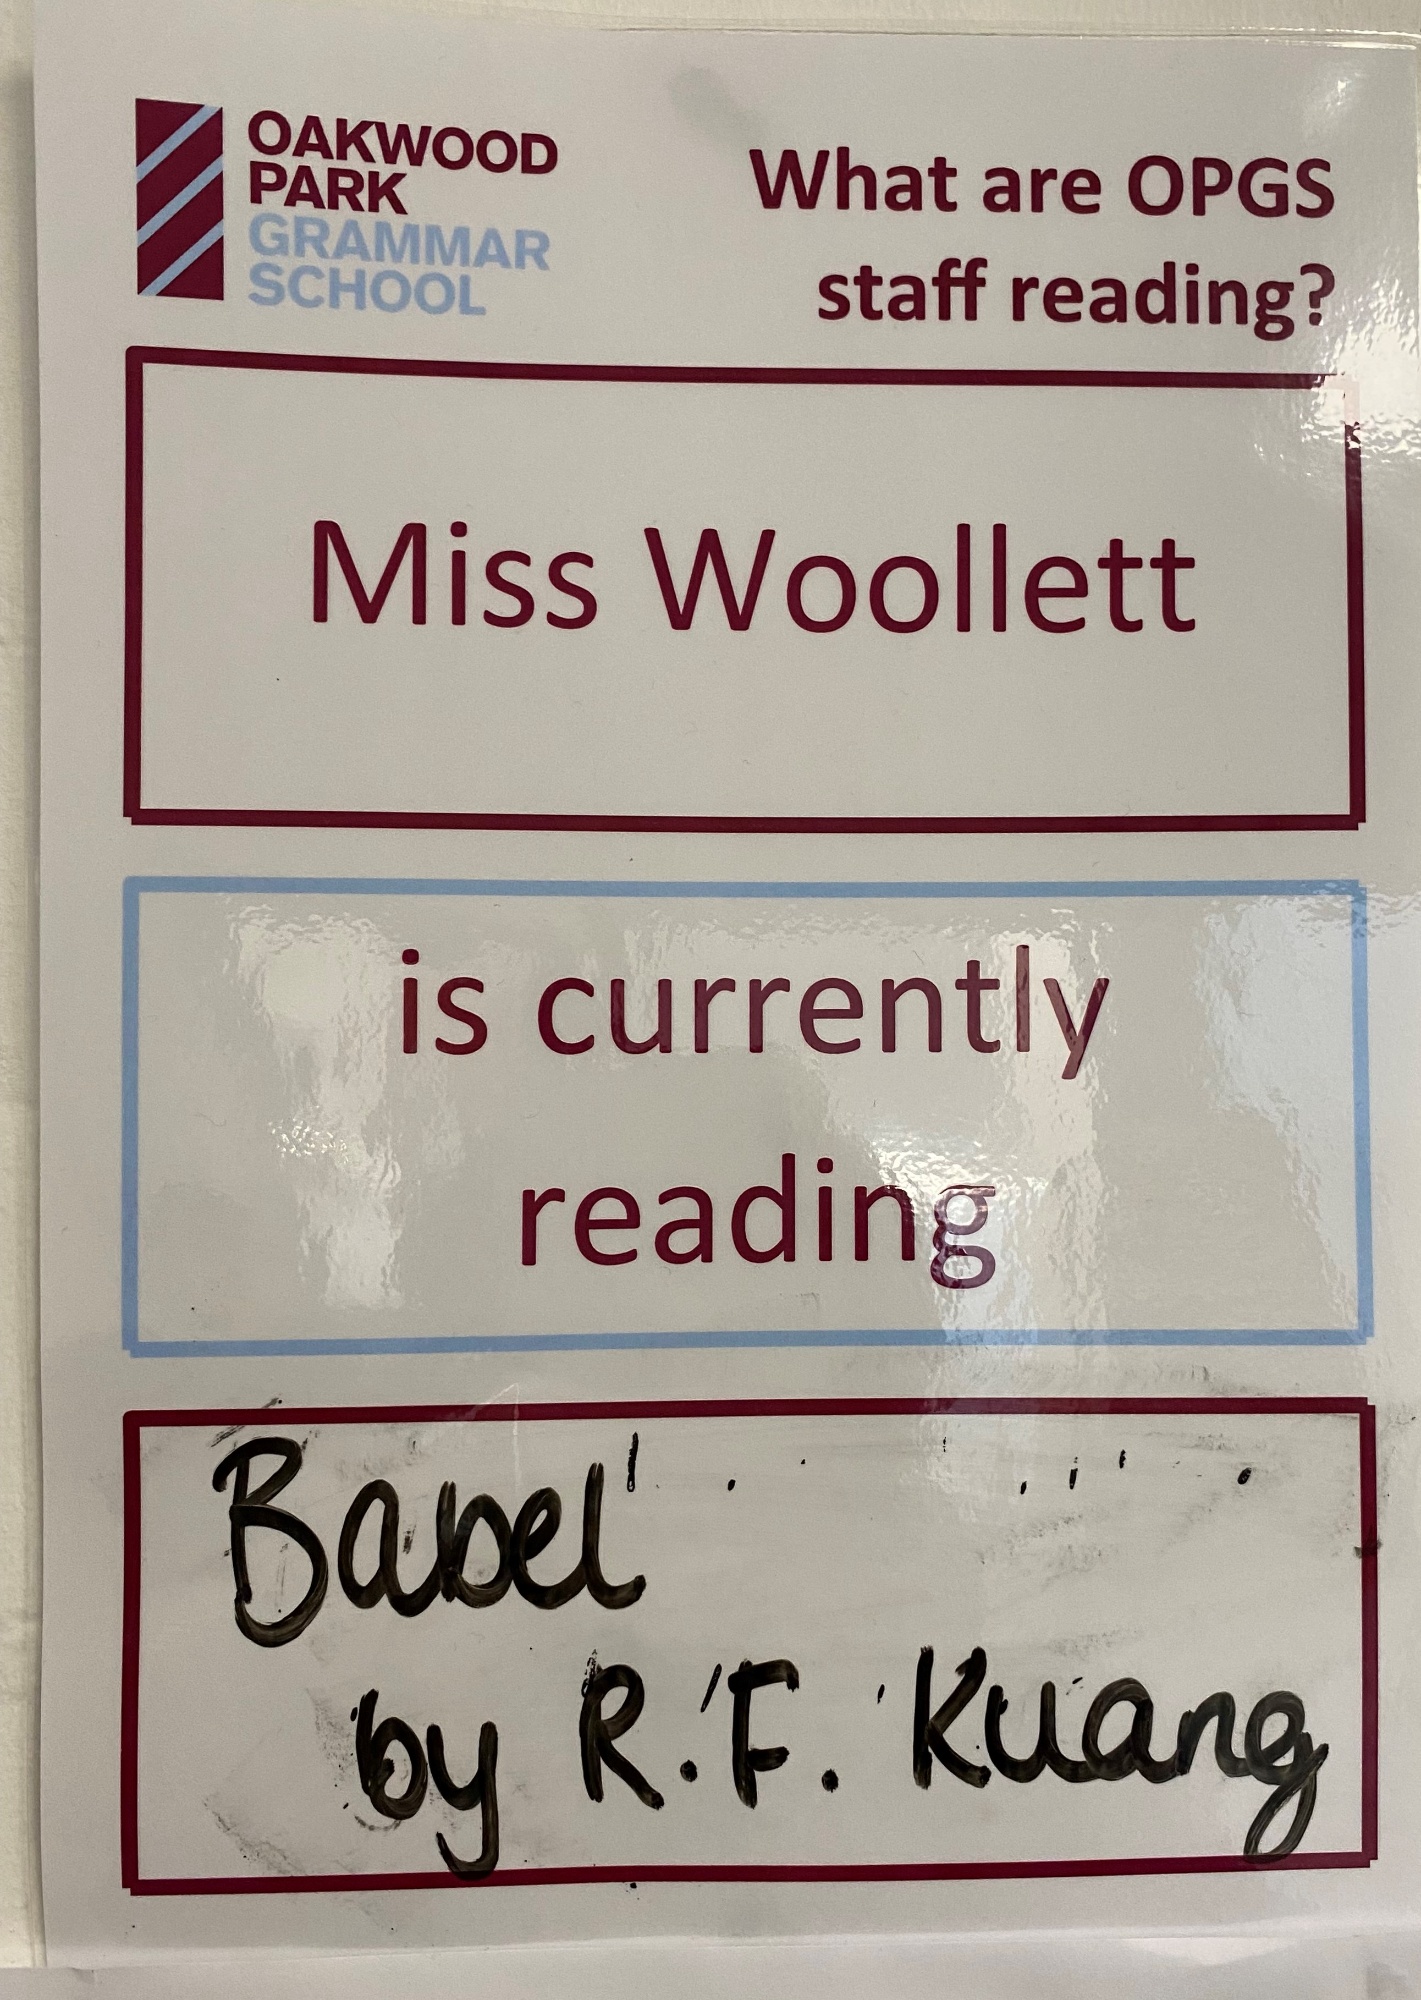 OAKWOOD
PARK
GRAMMAR
SCHOOL
What are OPGS
staff reading?
Miss Woollett
is currently
reading
Babel
by R.F. Kuang